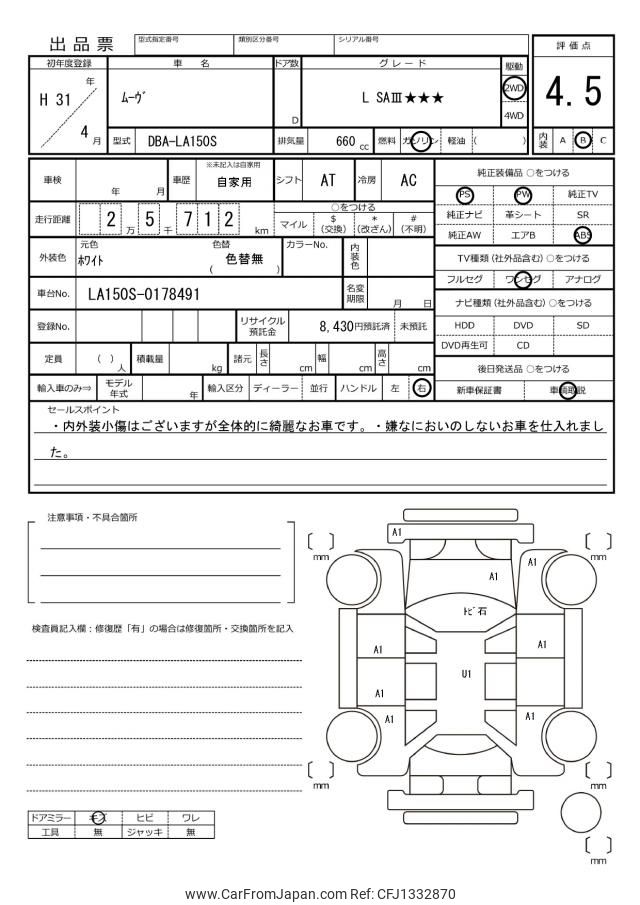 出品票
型式指定番号 類別区分番号 シリアル番号
評価点
4.5
内装 A B C
初年度登録 車名 ドア数 グレード 駆動
H 31 年 / 4 月
ムーヴ
D
L SAⅢ★★★
2WD
4WD
型式 DBA-LA150S 排気量 660 cc 燃料 ガソリン 軽油 ( )
車検 年 月 車歴 ※未記入は自家用 自家用 シフト AT 冷房 AC
走行距離 2 万 5 千 7 1 2 km
○をつける
マイル $(交換) *(改ざん) #(不明)
外装色 元色 ホワイト 色替 ( 色替無 ) カラーNo. 内装色
車台No. LA150S-0178491 名変期限 月 日
登録No. リサイクル預託金 8,430円預託済 未預託
定員 ( ) 人 積載量 kg 諸元 長さ cm 幅 cm 高さ cm
輸入車のみ⇒ モデル年式 年 輸入区分 ディーラー 並行 ハンドル 左 右
純正装備品 ○をつける
PS PW 純正TV
純正ナビ 革シート SR
純正AW エアB ABS
TV種類 (社外品含む) ○をつける
フルセグ ワンセグ アナログ
ナビ種類 (社外品含む) ○をつける
HDD DVD SD
DVD再生可 CD
後日発送品 ○をつける
新車保証書 車輌取説
セールスポイント
・内外装小傷はございますが全体的に綺麗なお車です。・嫌なにおいのしないお車を仕入れまし
た。
注意事項・不具合箇所
検査員記入欄：修復歴「有」の場合は修復箇所・交換箇所を記入
ドアミラー キズ ヒビ ワレ
工具 無 ジャッキ 無
A1
mm
mm
A1
A1
A1
トビ石
A1
A1
U1
A1
A1
A1
mm
mm
mm
www.CarFromJapan.com Ref: CFJ1332870